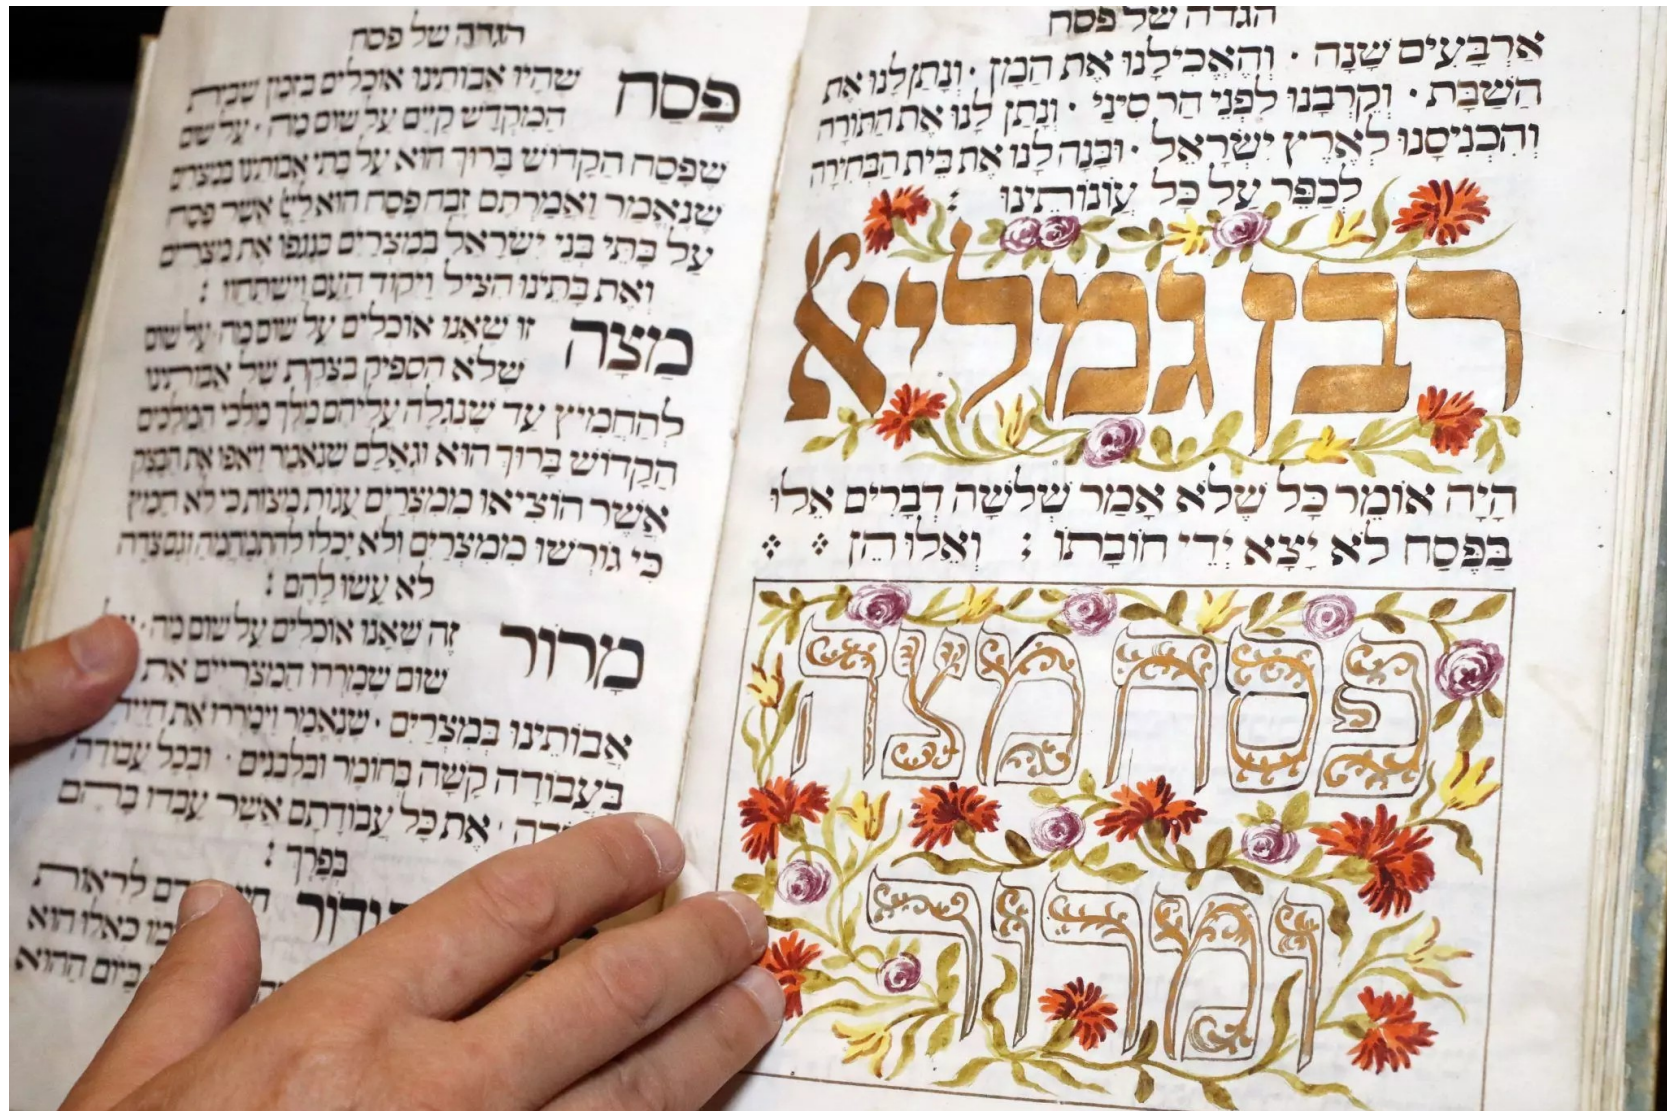 הגדה של פסח
ארבעים שנה · והאכילנו את המן · ונתן לנו את
השבת · וקרבנו לפני הר סיני · ונתן לנו את התורה
והכניסנו לארץ ישראל · ובנה לנו את בית הבחירה
לכפר על כל עונותינו :
רבן גמליאל
היה אומר כל שלא אמר שלשה דברים אלו
בפסח לא יצא ידי חובתו : ואלו הן
פסח מצה
ומרור
הגדה של פסח
פסח שהיו אבותינו אוכלים בזמן שבית
המקדש קיים על שום מה · על שום
שפסח הקדוש ברוך הוא על בתי אבותינו במצרים
שנאמר ואמרתם זבח פסח הוא ליי אשר פסח
על בתי בני ישראל במצרים בנגפו את מצרים
ואת בתינו הציל ויקוד העם וישתחוו :
מצה זו שאנו אוכלים על שום מה · על שום
שלא הספיק בצקת של אבותינו
להחמיץ עד שנגלה עליהם מלך מלכי המלכים
הקדוש ברוך הוא וגאלם שנאמר ויאפו את הבצק
אשר הוציאו ממצרים עגות מצות כי לא חמץ
כי גורשו ממצרים ולא יכלו להתמהמה וגם צדה
לא עשו להם :
מרור זה שאנו אוכלים על שום מה ·
שום שמררו המצריים את
אבותינו במצרים · שנאמר וימררו את חייהם
בעבודה קשה בחומר ובלבנים · ובכל עבודה
את כל עבודתם אשר עבדו בהם
בפרך :
לראות
כאלו הוא
ביום ההוא